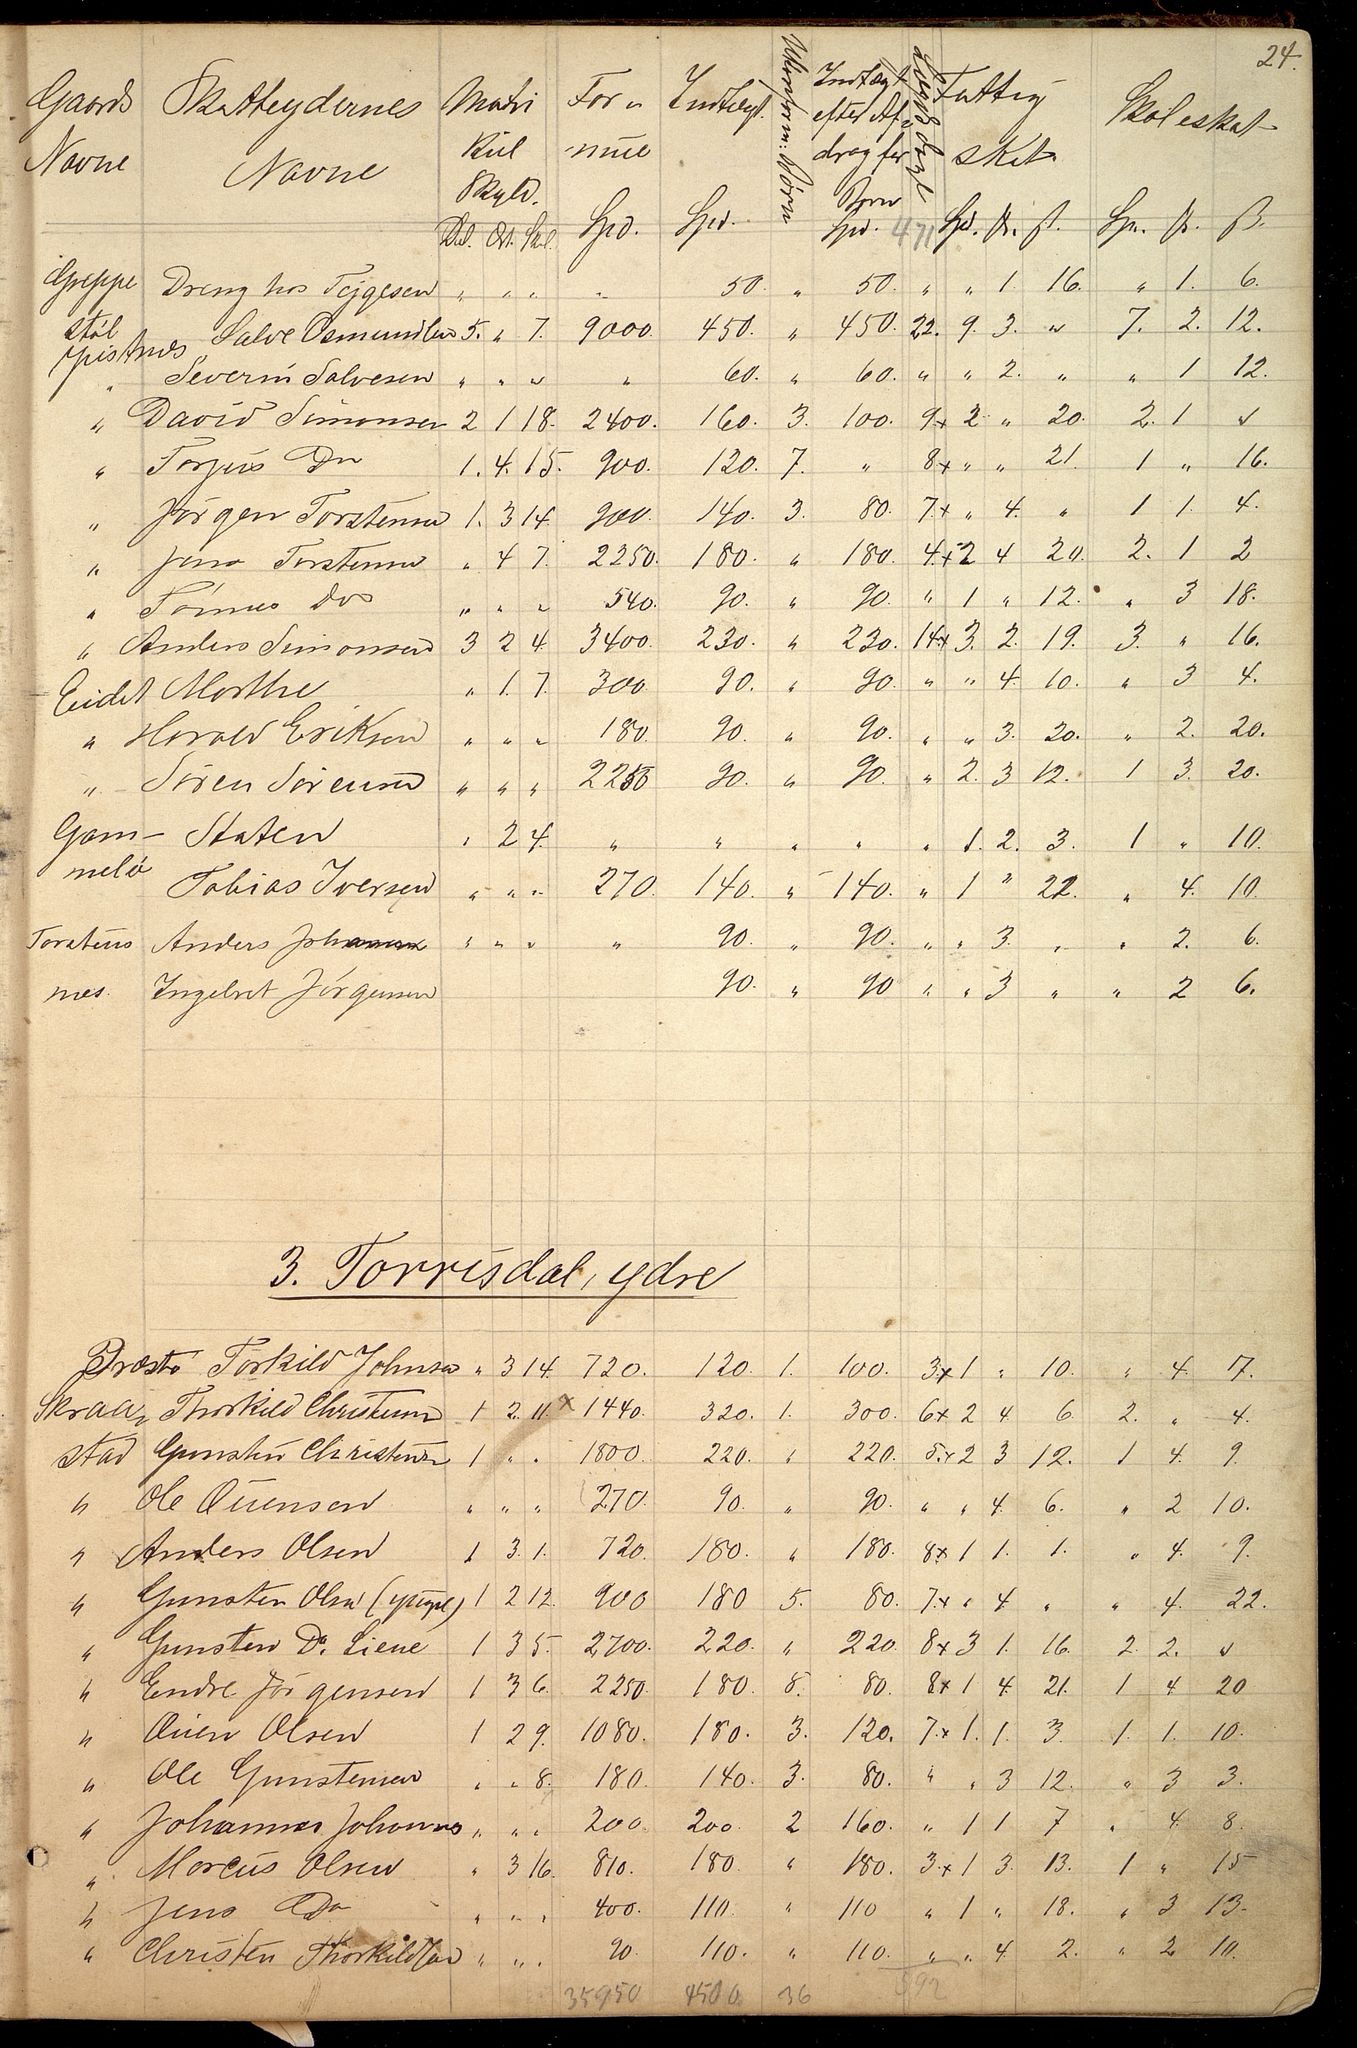 24.
Gaards Navne | Skatteydernes Navne | Matri kul Skyld. | For- mue | Indtægt. | Uforsør: Børn | Indtægt efter Af- drag for Børn | Dagl | Fattig skat | Skoleskat
Dal. Ort. Skl. | Spd. | Spd. | Spd. 471 | Spd. | Sp. ß.
Greppe Dreng hos Tejgesen " " " " 50. " 50. " " 1. 16. " 1. 6.
støl Salve Osmundsen 5. " 7. 9000. 450. " 450. 22. 9. 3. " 7. 2. 12.
" Severin Salvesen " " " " 60. " 60. " " 2. " " 1 12.
" David Simonsen 2 1 18. 2400. 160. 3. 100. 9x 2 " 20. 2. 1 "
" Torjus Do 1. 4. 15. 900. 120. 7. " 8x " " 21. 1 " 16.
" Jørgen Torstensen 1. 3 14. 900. 140. 3. 80. 7.x " 4. " 1 1. 4.
" Jens Torstensen " 4 7. 2250. 180. " 180. 4.x 2 4 20. 2. 1 2
" Tønnes Do " " " 540. 90. " 90. " 1 " 12. " 3 18.
" Anders Simonsen 3 2 4. 3400. 230. " 230. 14x 3. 2. 19. 3. " 16.
Eidet Marthe " 1. 7. 300 90. " 90. " " 4. 10. " 3 4.
" Harald Eriksen " " " 180. 90. " 90. " " 3. 20. " 2. 20.
" Søren Sørensen " " " 2250 90. " 90. " 2. 3 12. 1 3. 20.
Gam- Staten " 2 4. " " " " " 1. 2. 3. 1 " 10.
melø Tobias Iversen " " " 270. 140. " 140. " 1 " 22. " 4. 10.
Torstens Anders Johannes " " " " 90. " 90. " " 3. " " 2. 6.
nes. Ingebret Jørgensen 90. " 90 " " 3 " " 2 6.
3. Torrisdal, ydre
Præstø Torkild Johnsen " 3 14. 720. 120. 1. 100. 3x 1 " 10. " 4. 17.
Skraa- Thorkild Christensen 1 2. 11. x 1440. 320. 1. 300. 6x 2 4. 6. 2. " 4.
stad Gunsten Christensen 1 " " 1800. 220. " 220. 5.x 2 3 12. 1 4. 9.
" Ole Ouensen " " " 270. 90. " 90. " " 4. 6. " 2 10.
" Anders Olsen 1 3. 1. 720. 180. " 180. 8x 1 1. 1. " 4. 9.
" Gunsten Olsen 1 2 12. 900 180 5. 80. 7.x " 4 " " 4. 22.
" Gunsten Do. Liene 1 3 5. 2700. 220. " 220 8x 3 1. 16. 2. 2. "
" Endre Jørgensen 1 3 6. 2250. 180. 8. 80. 8x 1 4. 21. 1 4 20
" Ouen Olsen 1 2 9. 1080. 180. 3. 120. 7.x 1. 1. 3. 1. 1. 10.
" Ole Gunstensen " " 8. 180. 140. 3. 80. " " 3 12. " 3 3.
" Johannes Johannes " " " 200. 200. 2 160. " 1 1 7 " 4. 8.
" Marcus Olsen " 3 16. 810. 180. " 180. 3.x 1 3. 13. 1 " 15
" Jens Do " " " 400. 110. " 110 " 1 " 18. " 3 13.
" Christen Thorkildsen " " " 90. 110. " 110. " " 4 2. " 2 10.
35950 4500 36 592